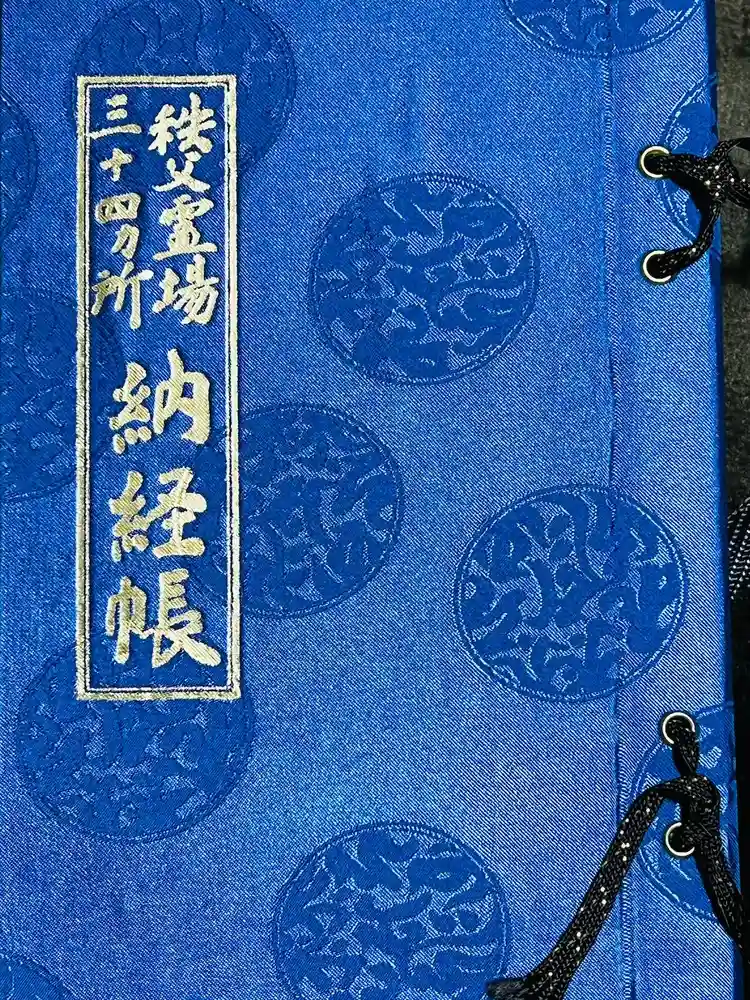 秩父霊場
三十四カ所
納経帳